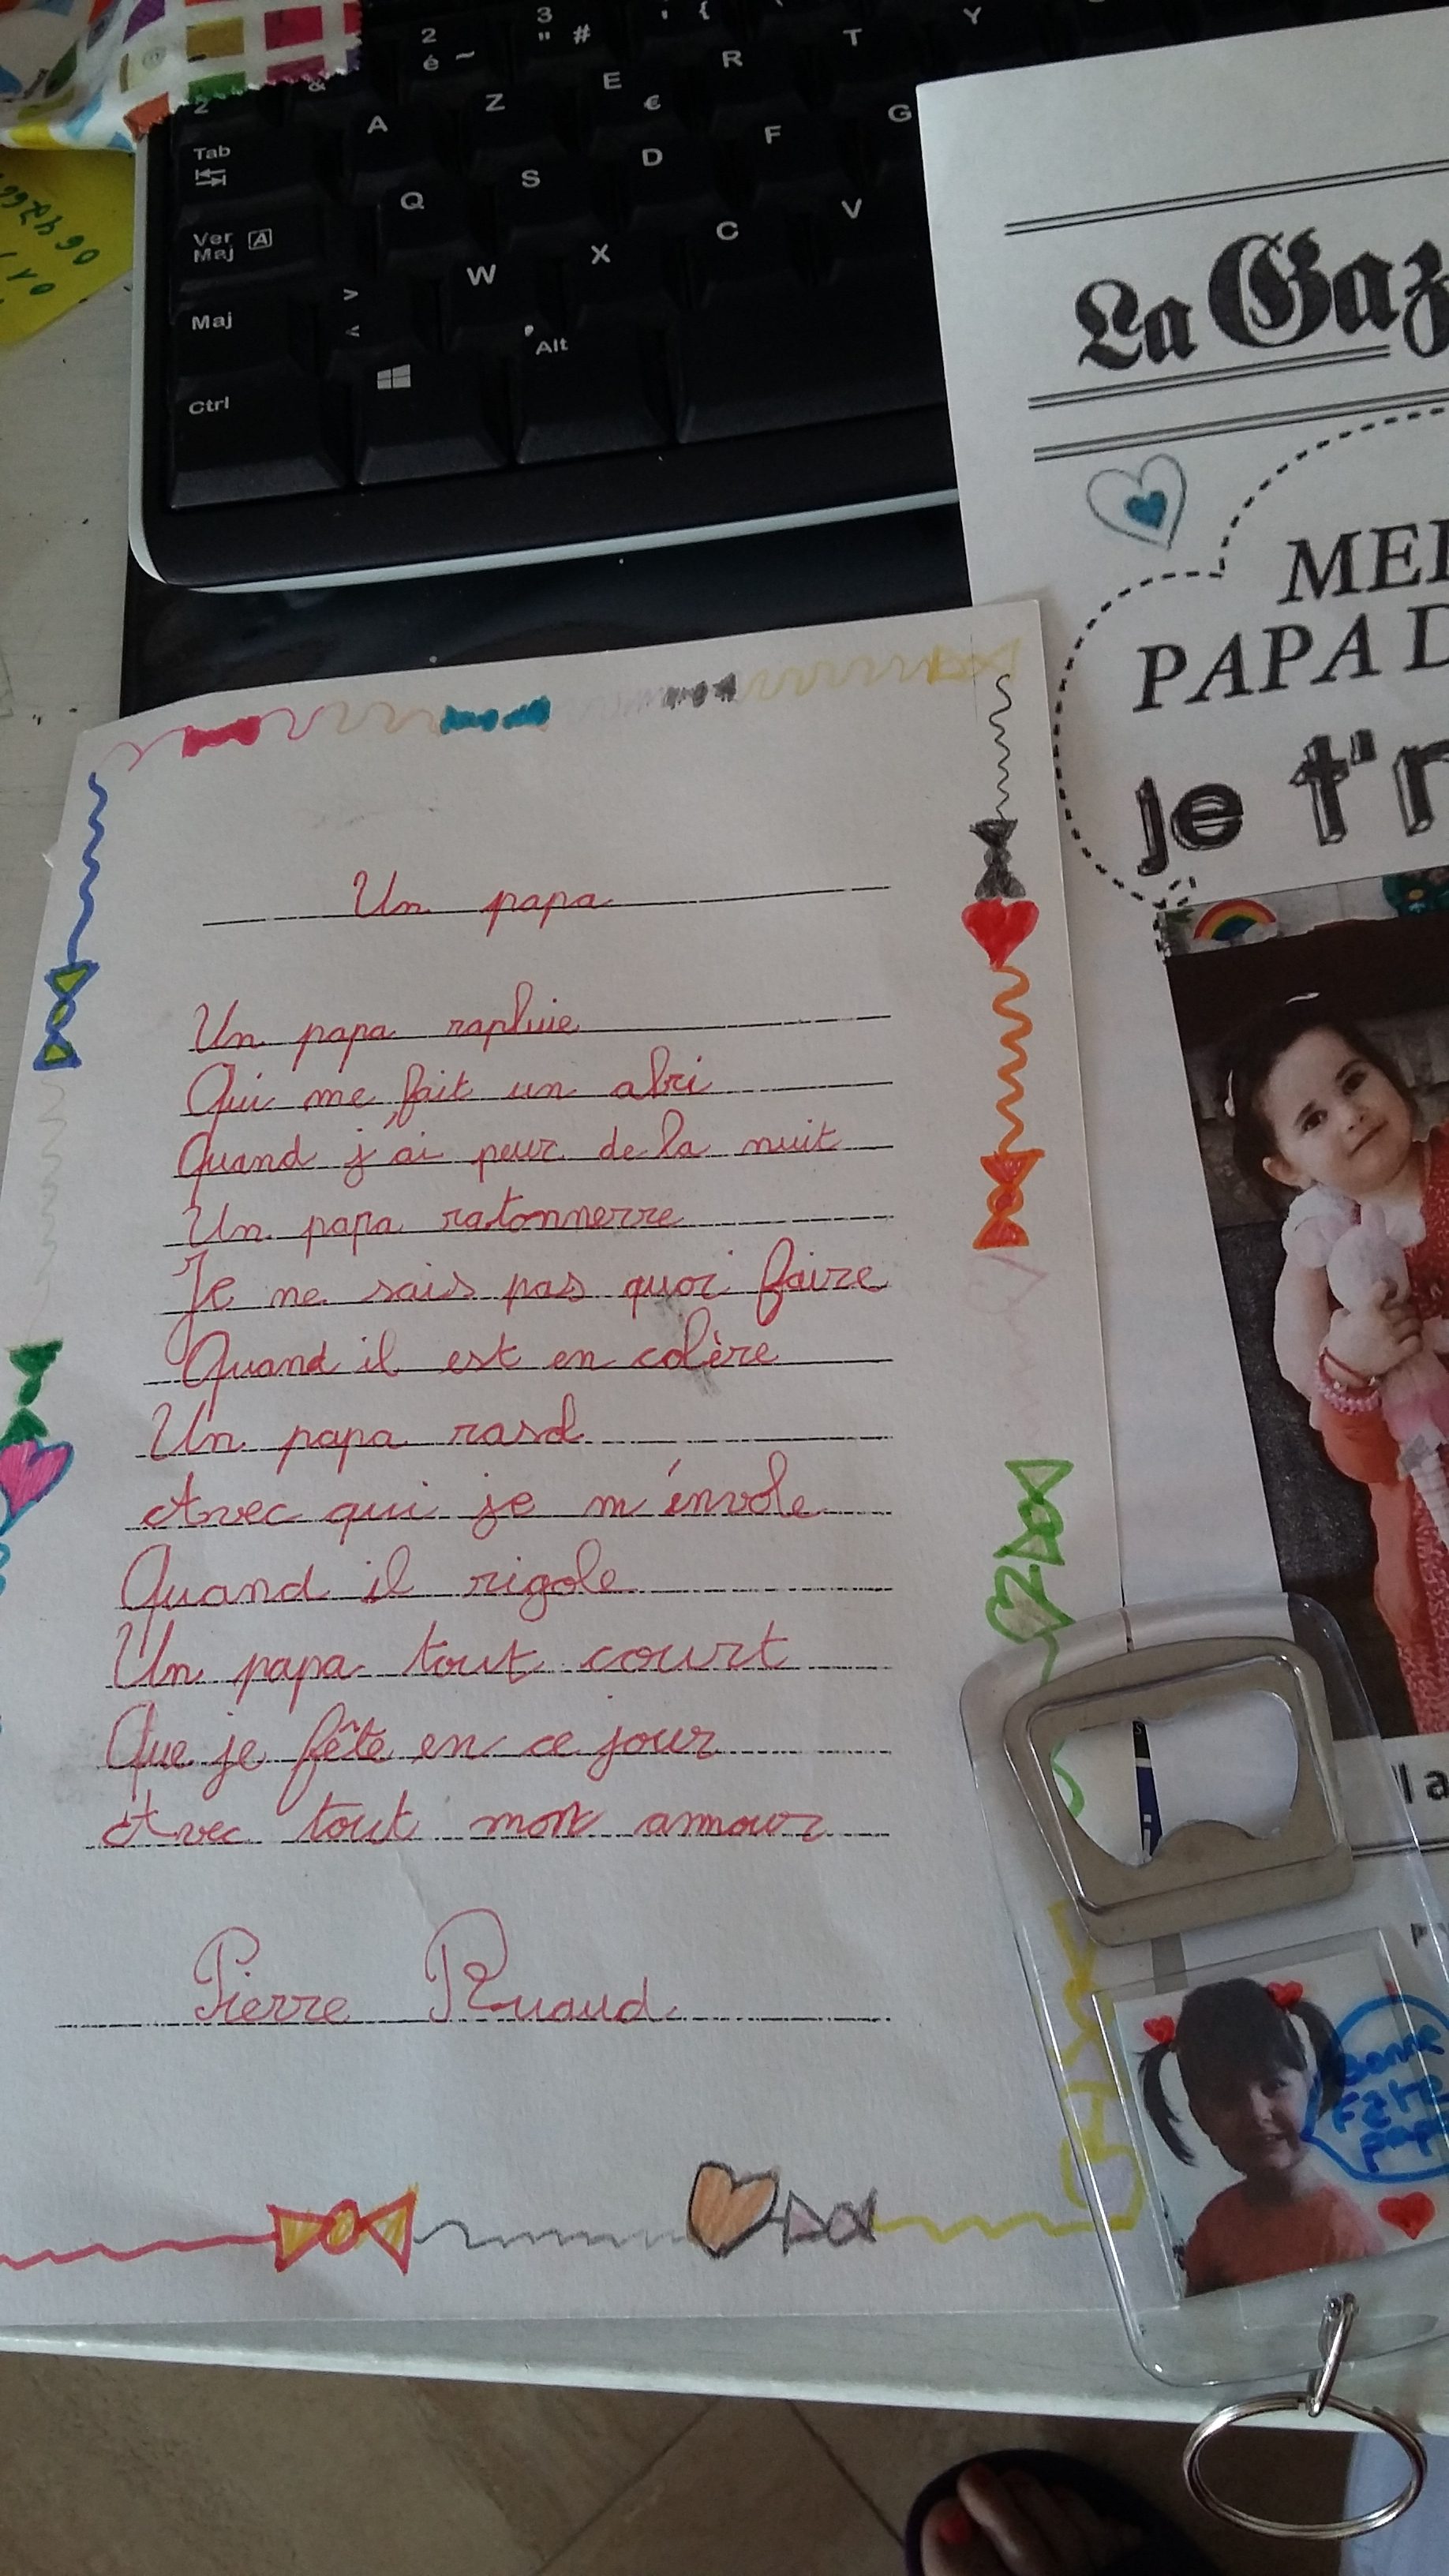 2 é ~
3 " #
' {
&
2
A Z E € R T Y
Tab
Q S D F G
Ver Maj A
W X C V
> <
Maj
Alt
Ctrl
La Gaz
PAPA D
je t'
Un papa
Un papa rapluie
Qui me fait un abri
Quand j'ai peur de la nuit
Un papa ratonnerre
Je ne sais pas quoi faire
Quand il est en colère
Un papa rasol
Avec qui je m'énvole
Quand il rigole
Un papa tout court
Que je fête en ce jour
Avec tout mon amour
Pierre Ruaud
Bonne
Fête
papa